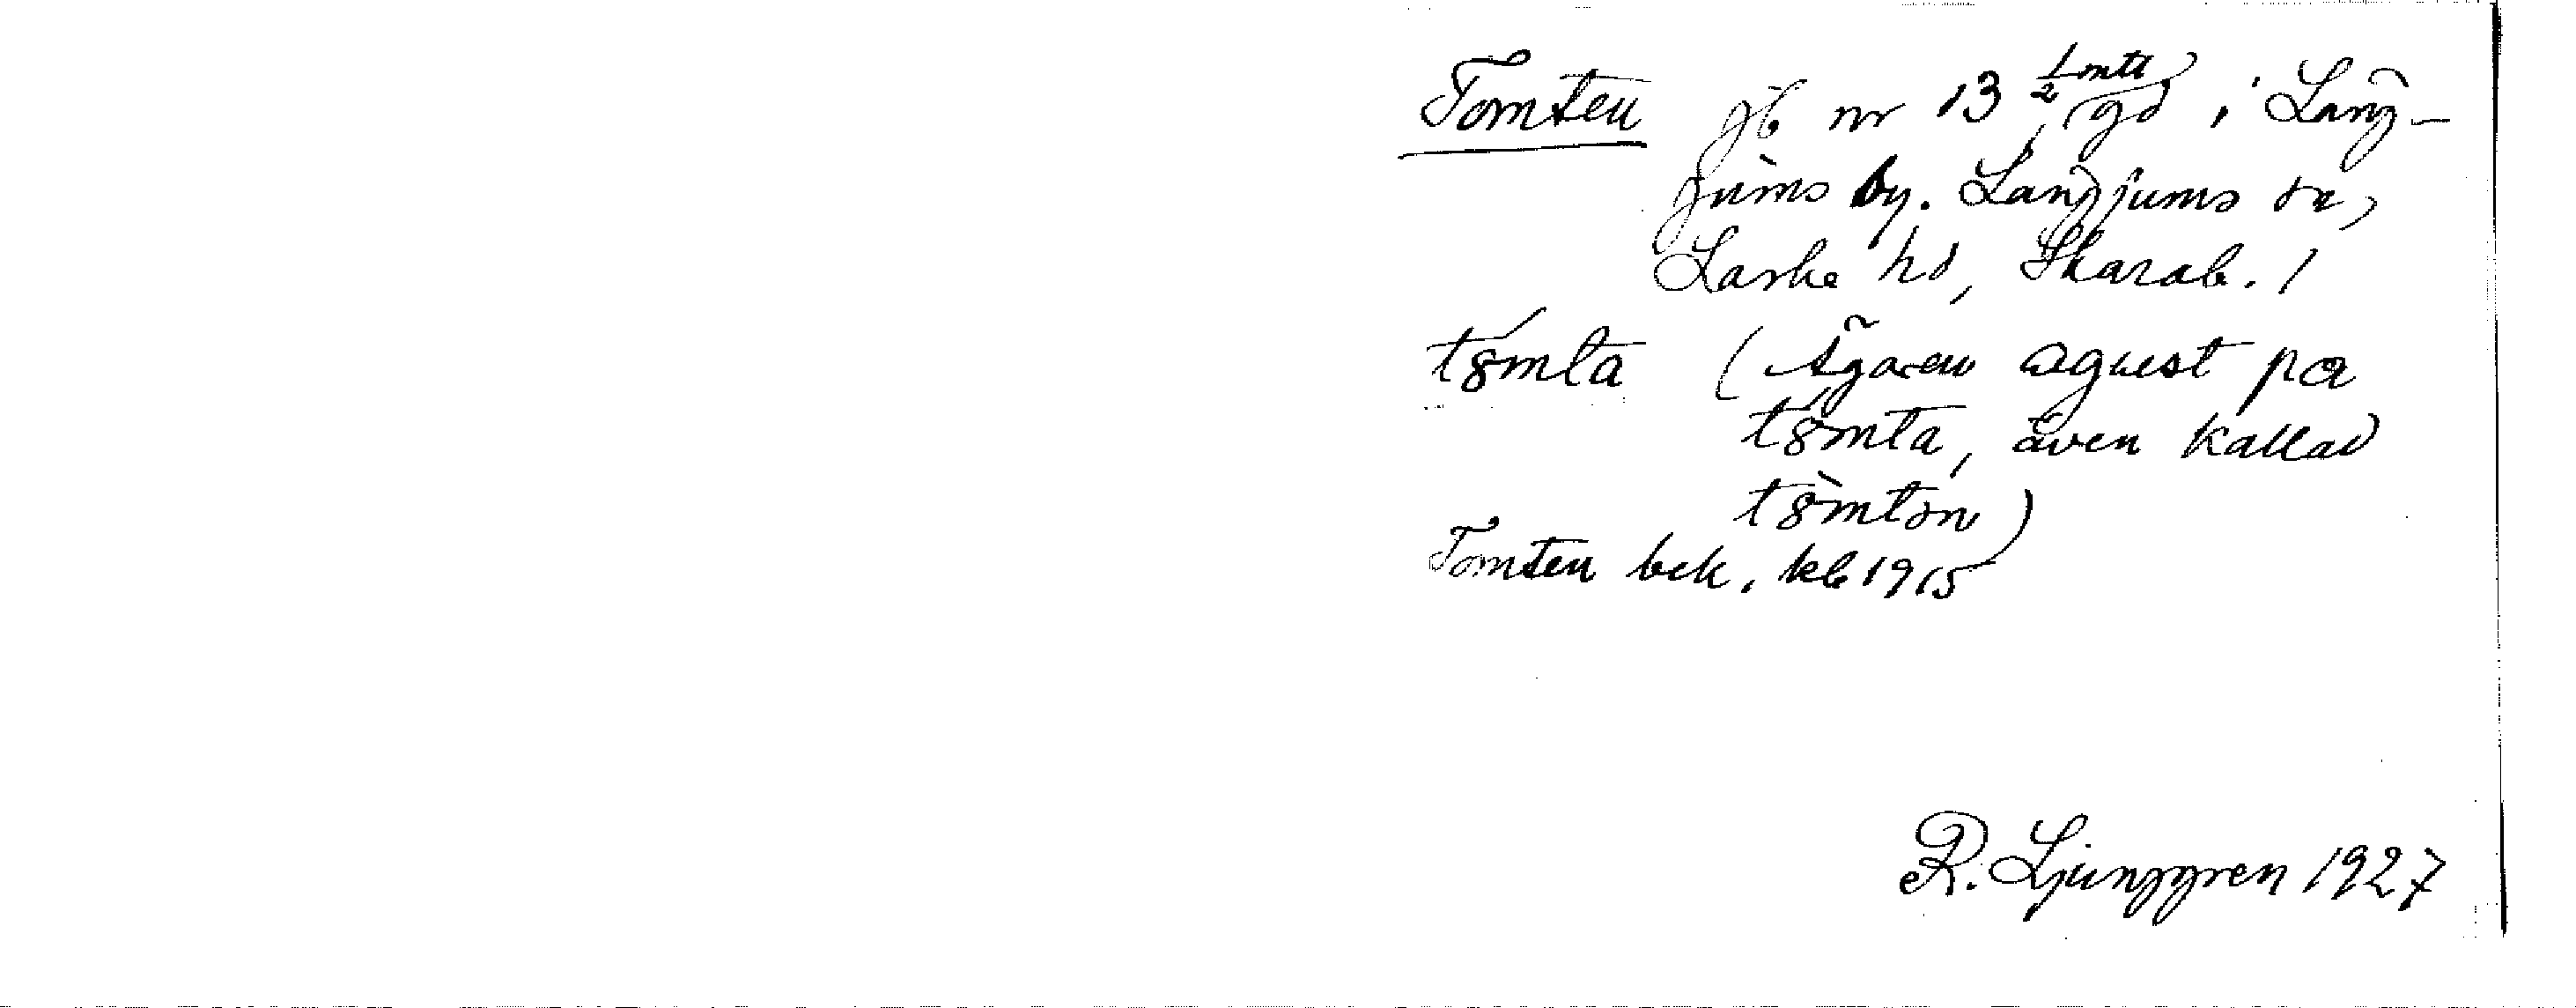 Tomten jb nr 13 1/2 mtl gd i Lång-
jums by. Långjums sn,
Laske hd, Skarab. l
tómta (Ägaren agust pa
tómta, även kallad
tòmtən)
Tomten bek. kb 1915
R. Ljunggren 1927